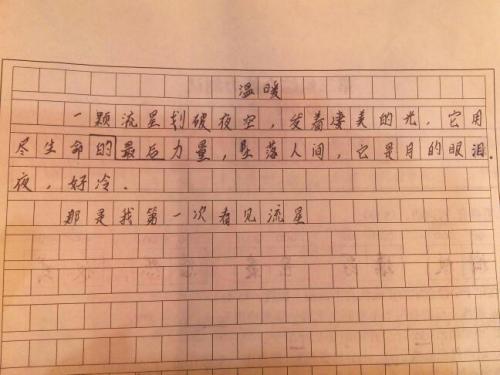 温暖
一颗流星划破夜空，发着凄美的光，它用
尽生命的最后力量，坠落人间，它是月的眼泪.
夜，好冷.
那是我第一次看见流星